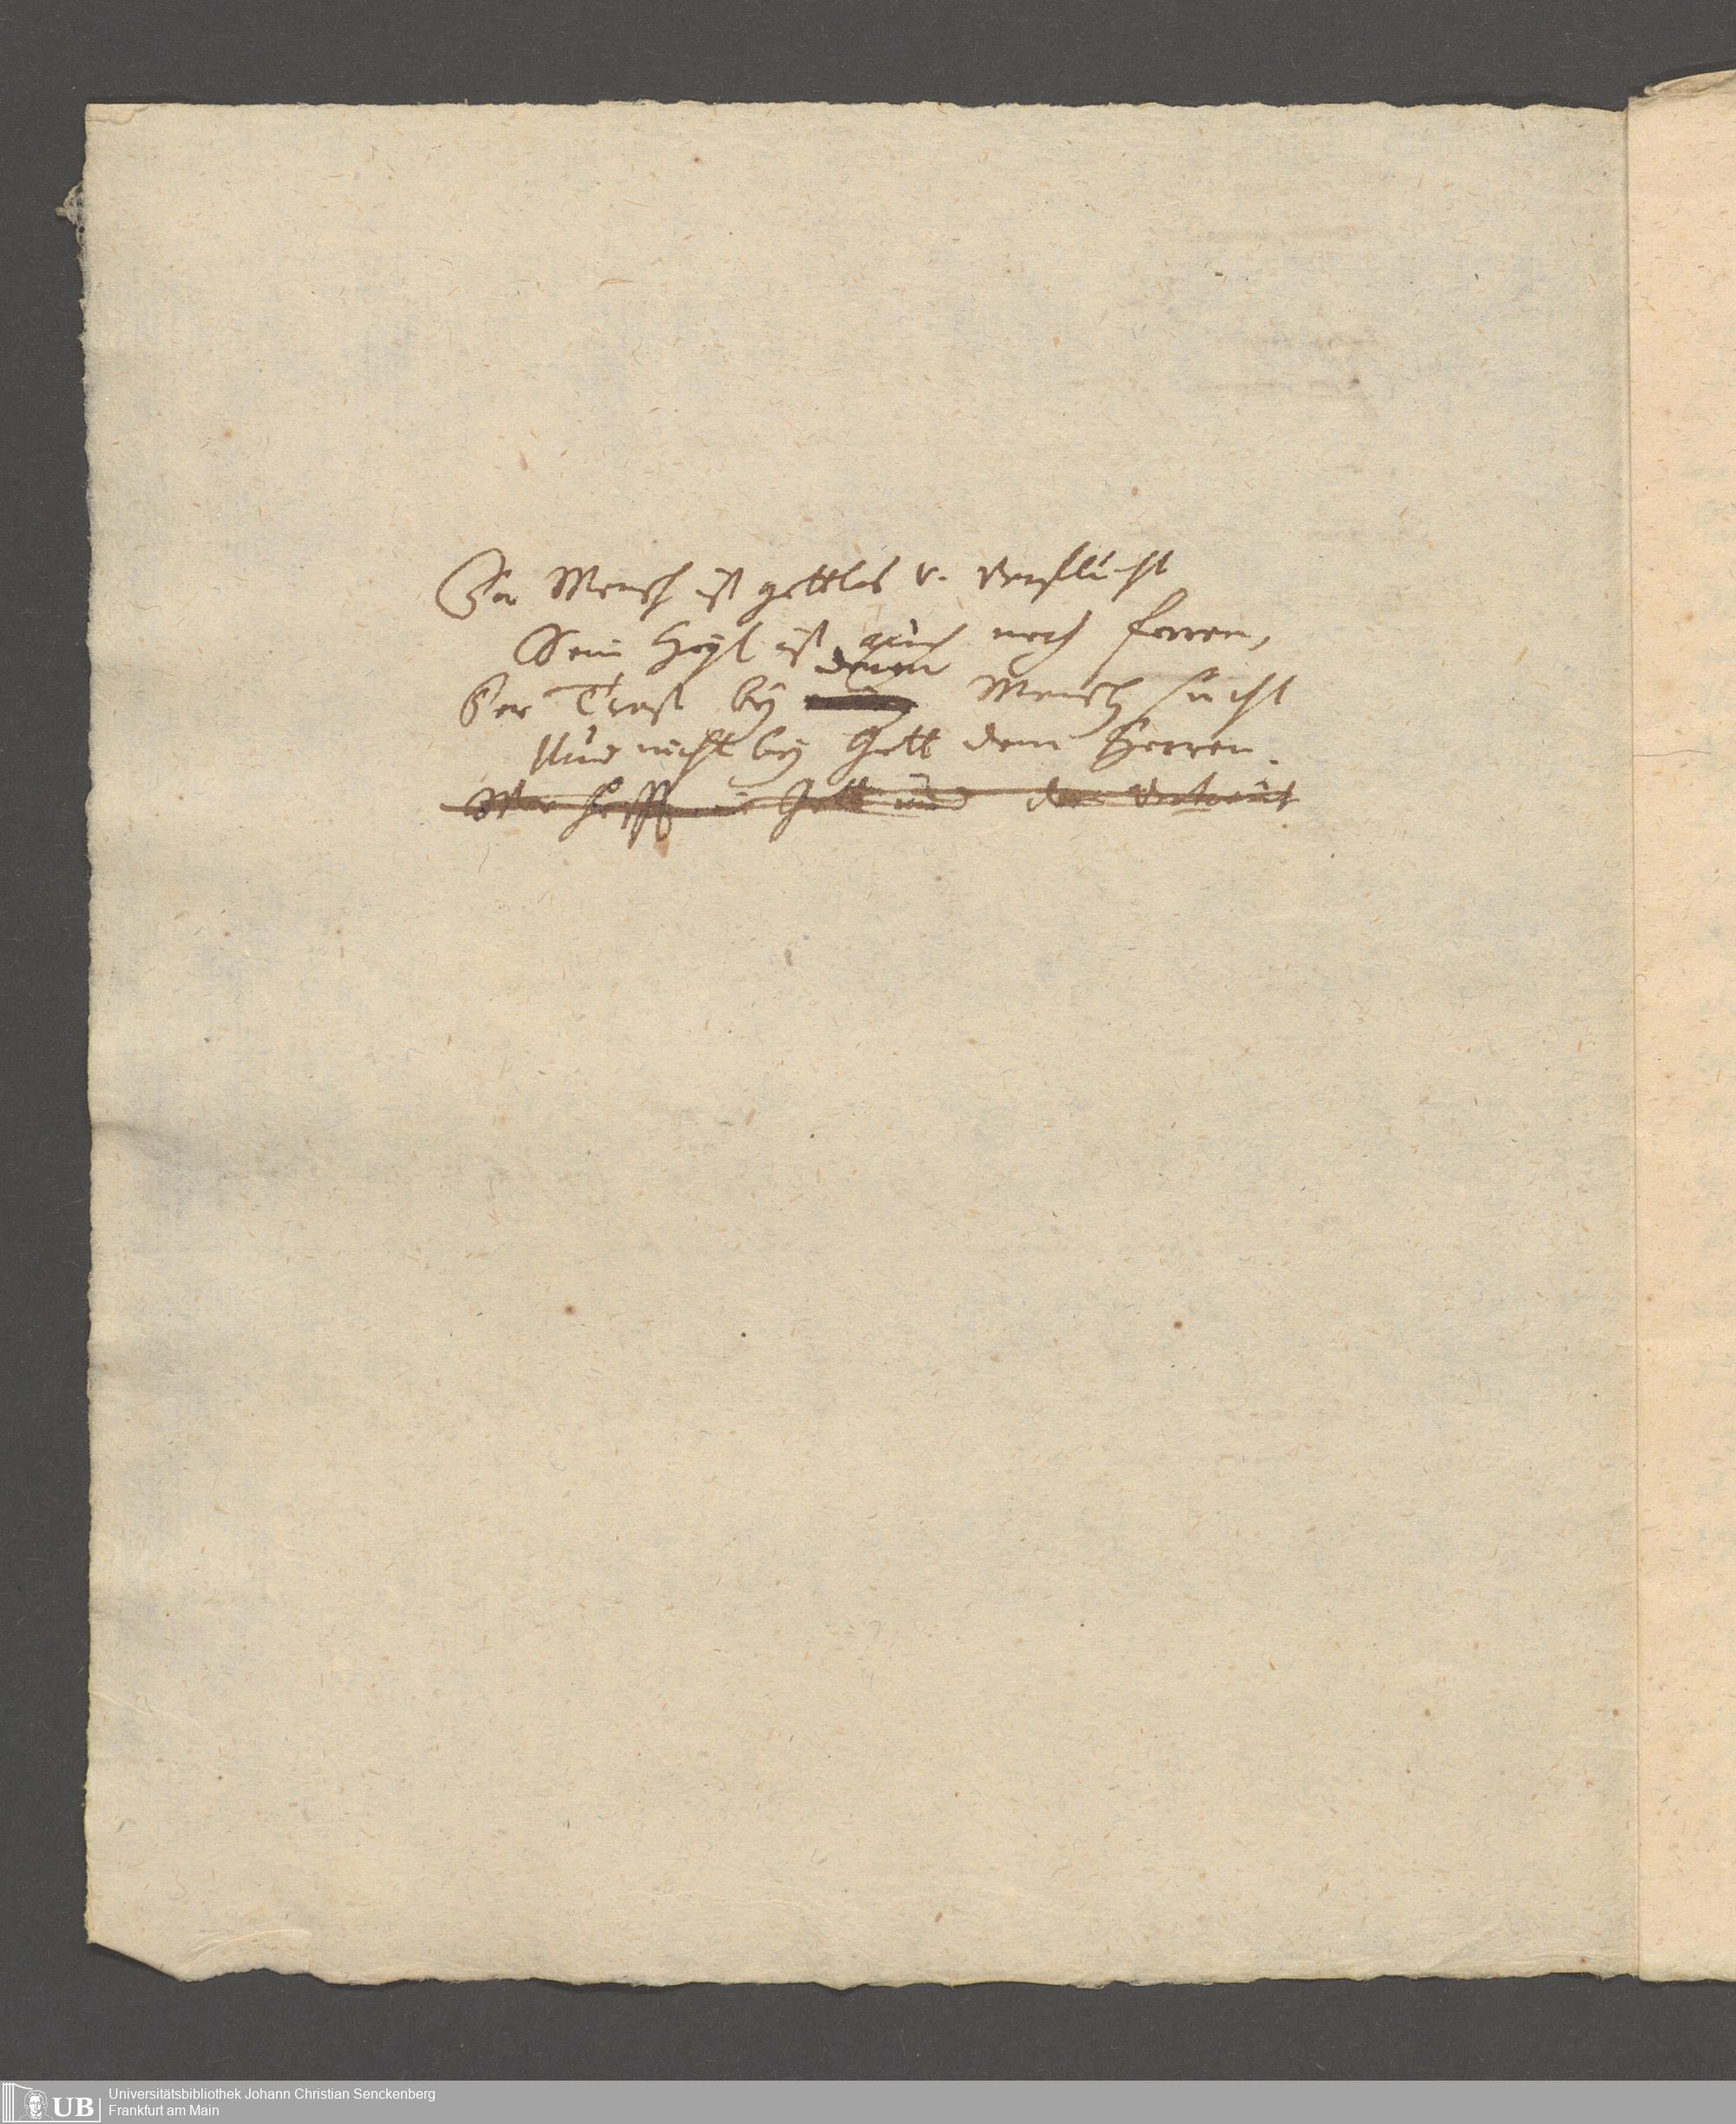 Der Mensch ist gottlos v. verflucht
Sein Heyl ist auch noch ferren,
denen
Der Trost bey Mensch sucht
Und nicht bey Gott dem Herren.
Wer hofft in Gott und dem vertraut
UB Universitätsbibliothek Johann Christian Senckenberg
Frankfurt am Main